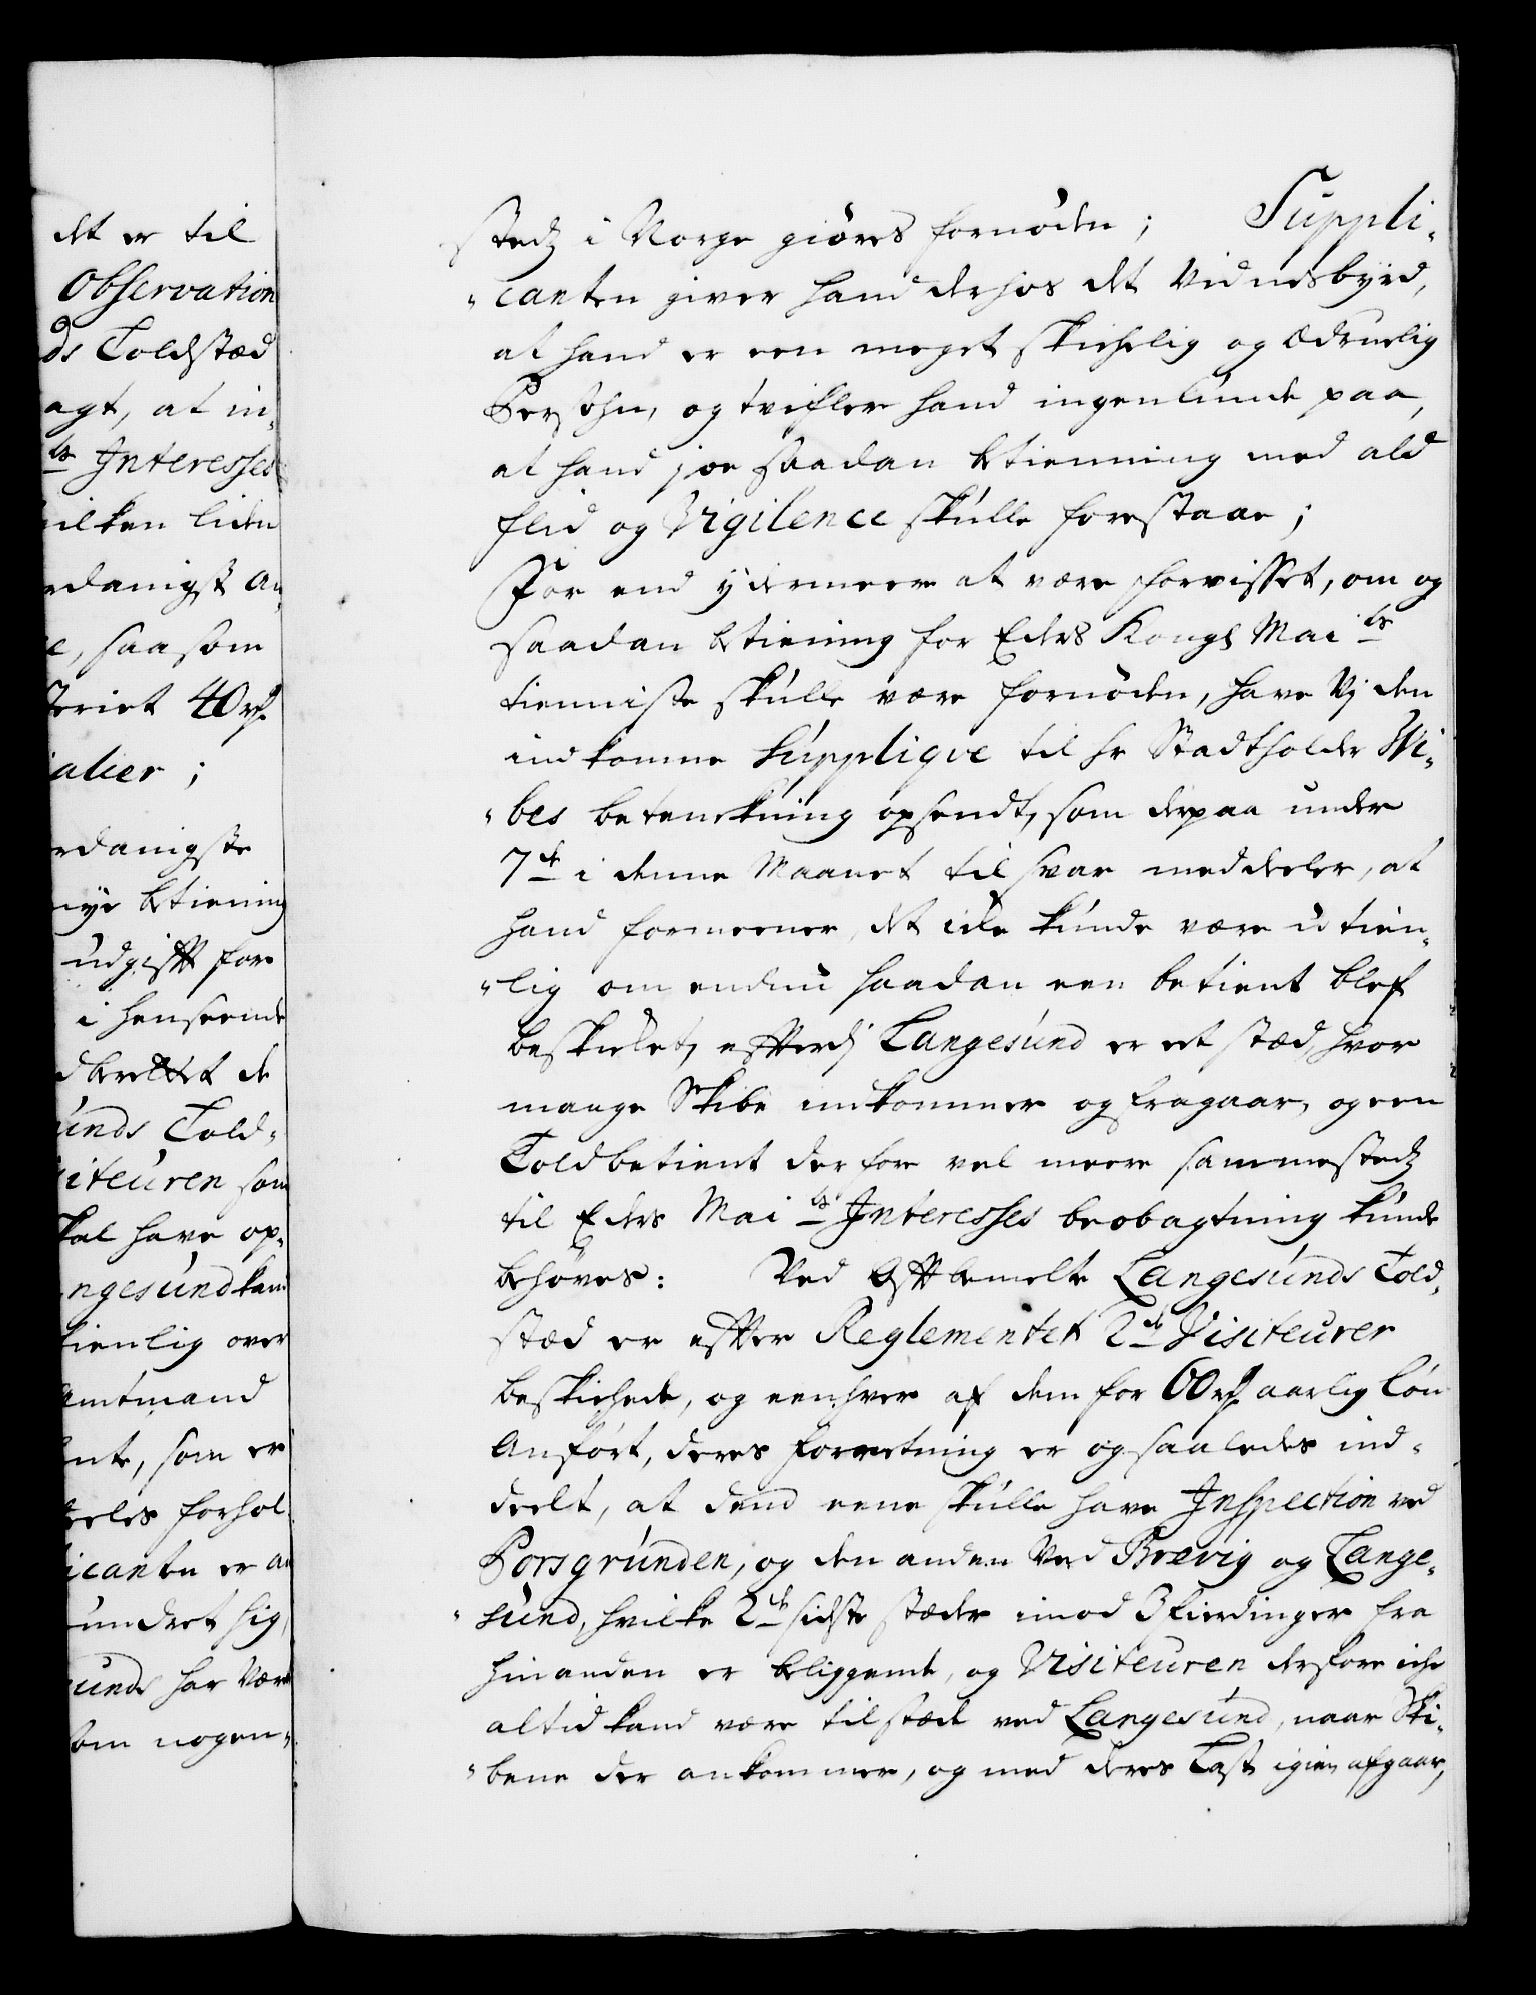 det er til
Observation
ds Toldstæd
agt, at in-
ts Interesses
ilken liden
rdanigst an
e, saasom
teriet 40 rd.
alier ;
rdanigste
nye betiening
udgifft for
i henseende
dberettet de
unds Told-
iteuren som
kal have op-
ngesund kand
tienlig over
Amtmand
nte, som er
eeles forhol
icanten er an
undret sig,
sunds har vær
som nogen-
stedz i Norge giøres fornøden ; Suppli-
canten giver hand derhos det Vidnesbyrd,
at hand er een meget skichelig og ædruelig
Persohn, og tvifler hand ingenlunde paa,
at hand joe saadan betienning med ald
flid og Vigilence skulle forestaae ;
For end ydermeere at være forvisset, om og
saadan betiening for Eders Kongl Mai ts
tienniste skulle være fornøden, have Vj den
indkomne Supplique til hr Stadtholder Wi-
bes betenckning opsendt, som derpaa under
7de i denne Maanet til svar meddeeler, at
hand formeener, det icke kunde være utien-
lig om endnu saadan een betient blef
beskicket, efftterdj Langesund er et stæd, hvor
mange Skibe indkommer og fragaar, og een
Toldbetient der for vel meere sammestedz
til Eders Mai ts Interesses beobagtning kunde
behøves : Ved offtbemelte Langesunds Told-
stæd er effter Reglementet 2de Visiteurer
beskichede, og eenhver af dem for 60 rd aarlig løn
anført, deres forretning er og saaledes ind-
deelt, at dend eene skulle have Inspection ved
Porsgrunden, og den anden Ved Brevig og Lange-
sund, hvilke 2de sidste stæder imod 3 fierdinger fra
hinanden er beliggende, og Visiteuren derfore iche
altid kand være tilstæde ved Langesund, naar Ski-
bene der ankommer, og med deres Last igien afgaar,